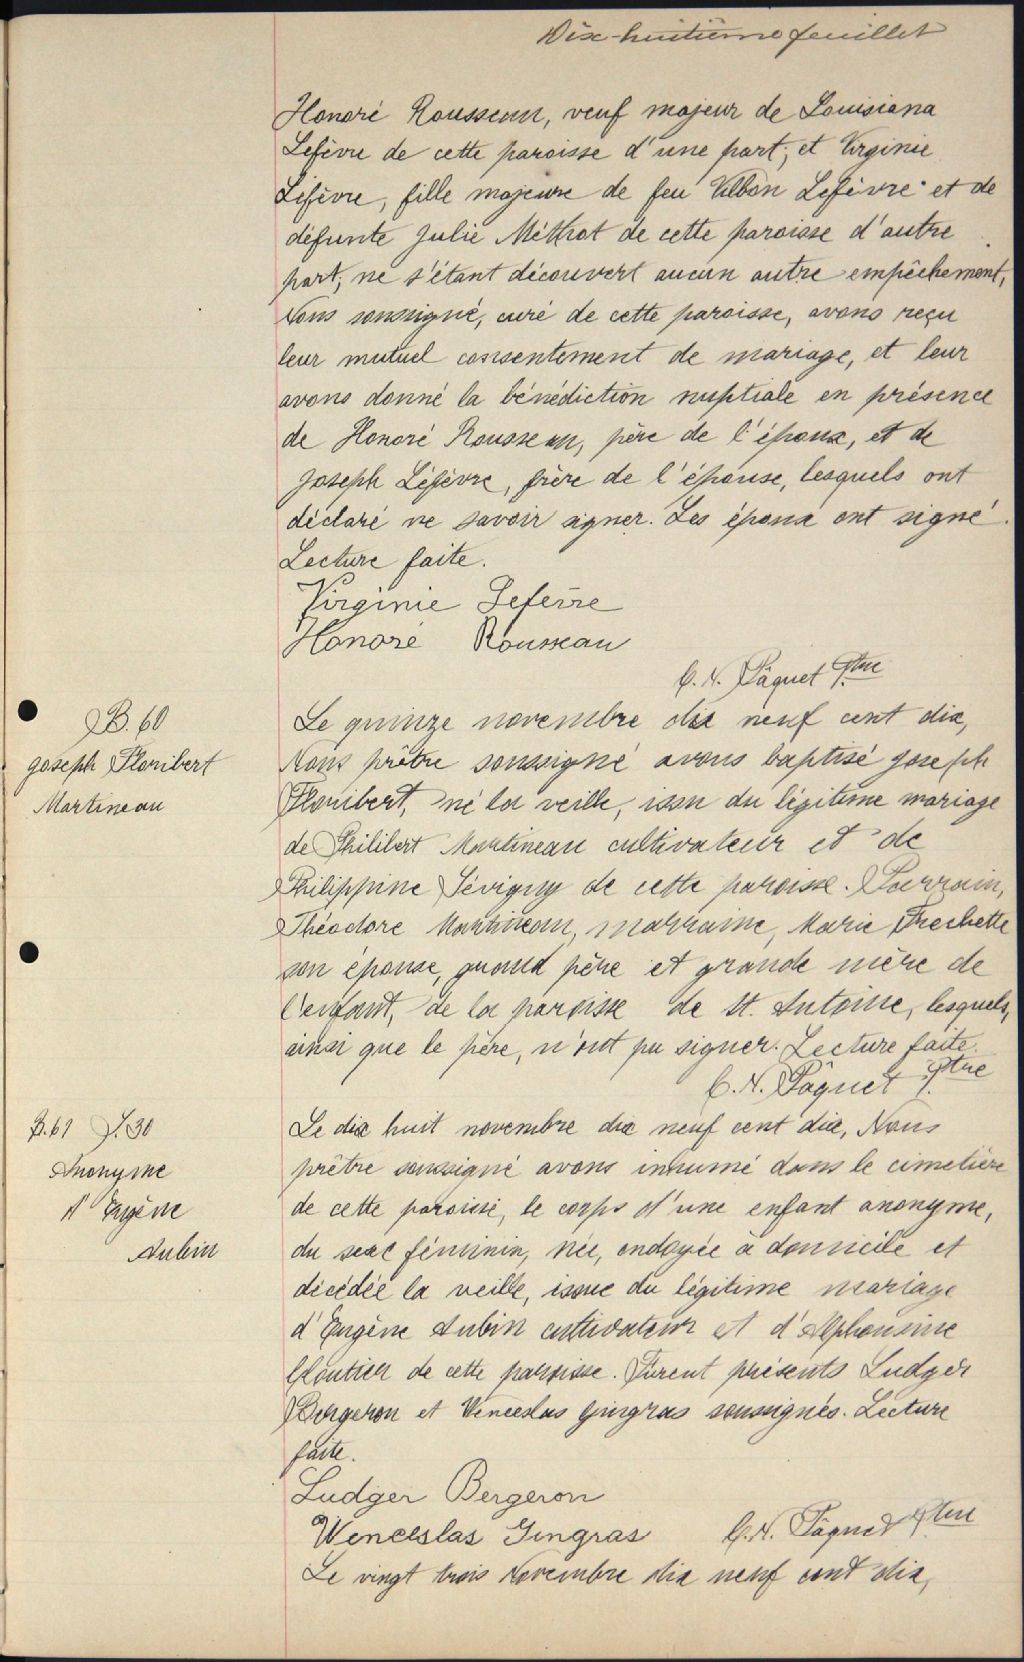 Dix-huitième feuillet
Honoré Rousseau, veuf majeur de Louisiana
Lefèvre de cette paroisse d'une part; et Virginie
Lefèvre, fille majeure de feu Lefèvre et de
défunte Julie Méthot de cette paroisse d'autre
part; ne s'étant découvert aucun autre empêchement,
Nous soussigné, curé de cette paroisse, avons reçu
leur mutuel consentement de mariage, et leur
avons donné la bénédiction nuptiale en présence
de Honoré Rousseau, père de l'époux, et de
Joseph Léfèvre, frère de l'épouse, lesquels ont
déclaré ne savoir signer. Les époux ont signé.
Lecture faite.
Virginie Lefèvre
Honoré Rousseau
C. N. Pâquet Ptre
B. 60
Joseph Floribert
Martineau
Le quinze novembre dix neuf cent dix,
Nous prêtre soussigné avons baptisé Joseph
Floribert, né la veille, issu du légitime mariage
de Philibert Martineau cultivateur et de
Philippine Sévigny de cette paroisse. Parrain,
Théodore Martineau, marraine, Marie Frechette
son épouse, grand père et grande mère de
l'enfant, de la paroisse de St. Antoine, lesquels,
ainsi que le père, n'ont pu signer. Lecture faite.
C. N. Pâquet Ptre
B. 61 S. 30
Anonyme
d'Eugène
Aubin
Le dix huit novembre dix neuf cent dix, Nous
prêtre soussigné avons inhumé dans le cimetière
de cette paroisse, le corps d'une enfant anonyme,
du sexe féminin, née, ondoyée à domicile et
décédée la veille, issue du légitime mariage
d'Eugène Aubin cultivateur et d'Alphonsine
Cloutier de cette paroisse. Furent présents Ludger
Bergeron et Venceslas Gingras soussignés. Lecture
faite.
Ludger Bergeron
Wenceslas Gingras C. N. Pâquet Ptre
Le vingt trois Novembre dix neuf cent dix,